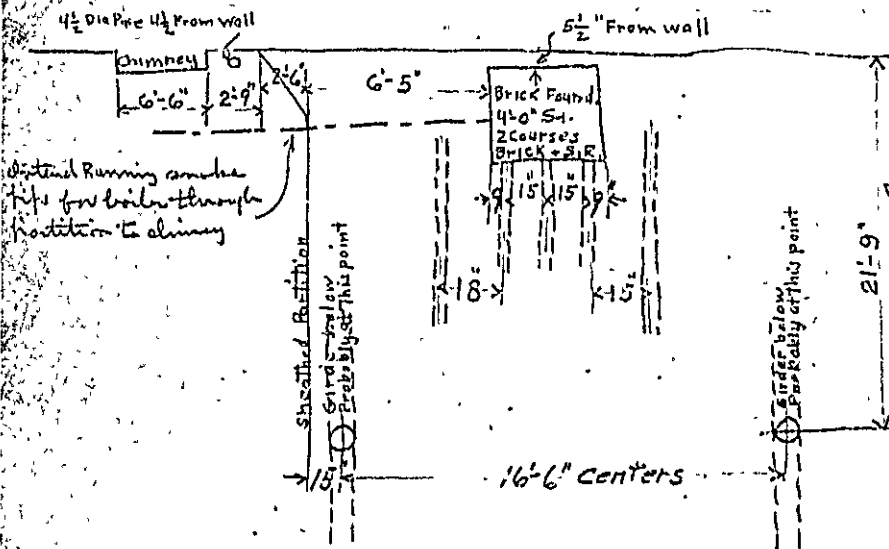 4½ Dia Pipe 4½ From wall
5½" From wall
Chimney
6'-6"
2'-9"
2'-6"
6'-5"
Brick Found.
4'-0" Sq.
2 Courses
Brick + S.I.R.
Intend Running smoke
pipe for boiler through
partition to chimney
9"
15"
15"
9"
18"
15"
Sheathed Partition
Girder below
Probably at this point
Girder below
Probably at this point
21'-9"
15"
16'-6" Centers